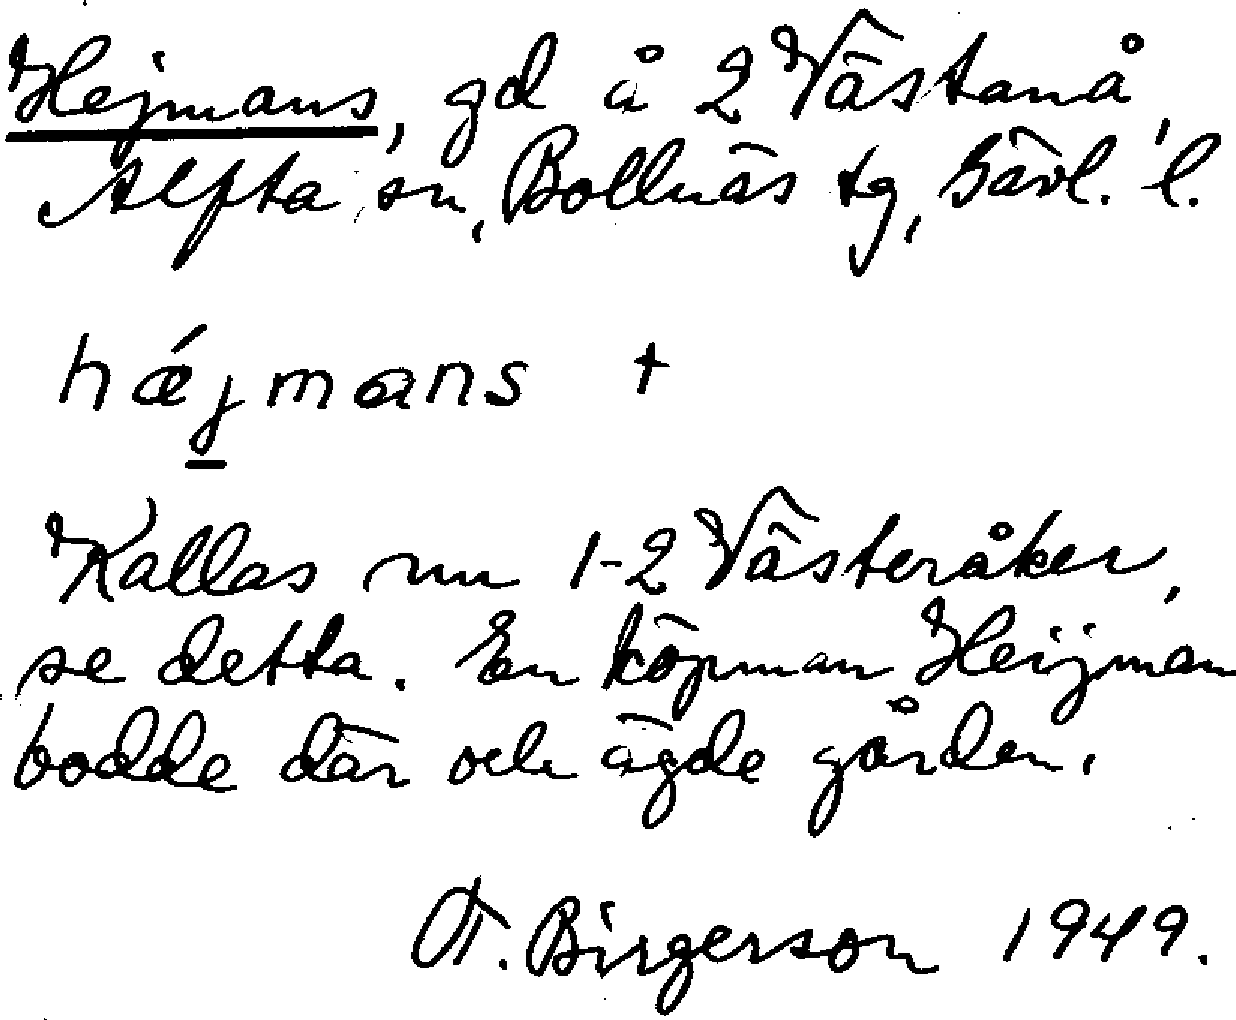 Hejmans, gd å 2 Västanå
Alfta sn, Bollnäs tg, Gävl. l.
hǽjmans +
Kallas nu 1-2 Västeråker,
se detta. En köpman Heijman
bodde där och ägde gården.
T. Birgerson 1949.